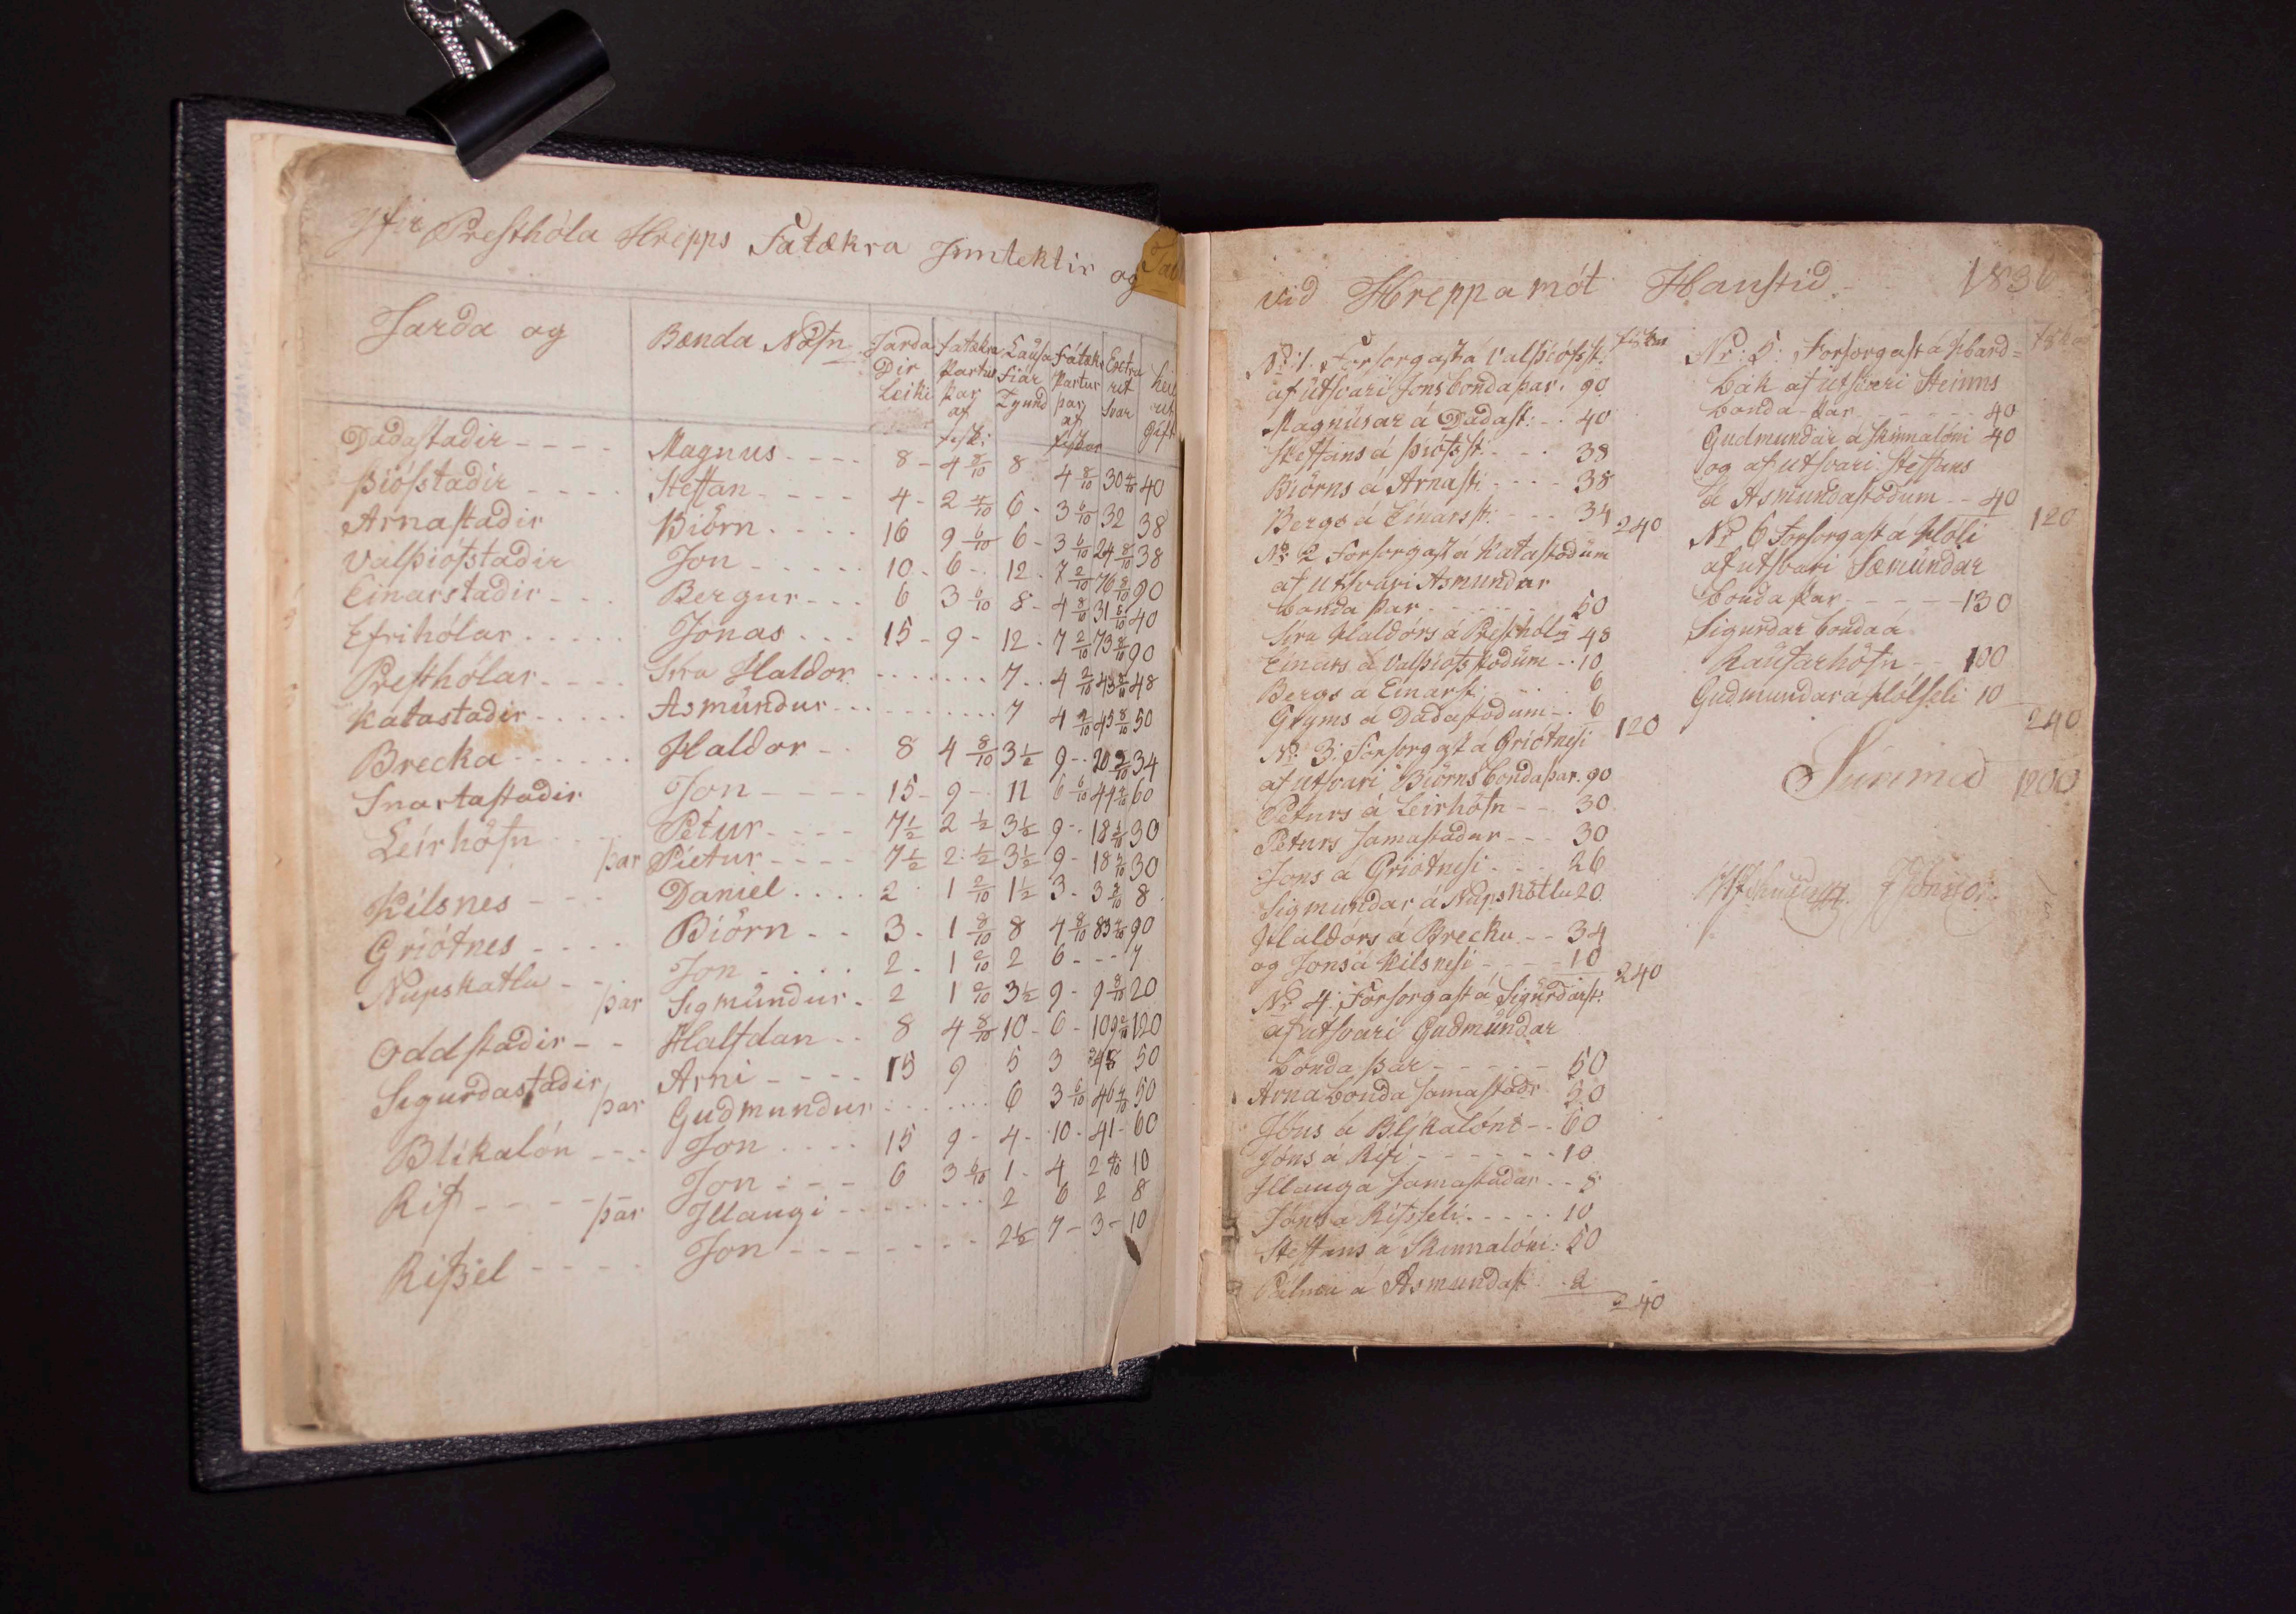 Yfir Presthóla Hrepps Fatækra Inntektir og
Jarda og Bænda Nöfn Jarda Dir Leiki fatækra Partur þar af fiski Lausa Fiár Tyund Fátæk Partur þar af fiskar Exctra ut svar heil ut gift
Dadastadir Magnus 8 4 8/10 8 4 8/10 30 4/10 40
Þiófstadir Steffan 4 2 4/10 6 3 6/10 32 38
Arnastadir Biörn 16 9 6/10 6 3 6/10 24 8/10 38
Valþiófstadir Jon 10 6 12 7 2/10 76 8/10 90
Einarstadir Bergur 6 3 6/10 8 4 8/10 31 6/10 40
Efrihólar Jónas 15 9 12 7 2/10 73 8/10 90
Presthólar Síra Haldor 7 4 2/10 43 8/10 48
Katastadir Asmundur 7 4 2/10 45 8/10 50
Brecka Haldor 8 4 8/10 3 1/2 9 20 2/10 34
Snartastadir Jon 15 9 11 6 6/10 44 4/10 60
Leirhöfn Pétur 7 1/2 2 1/2 3 1/2 9 18 30
þar Pietur 7 1/2 2 1/2 3 1/2 9 18 30
Kilsnes Daniel 2 1 2/10 1 1/2 3 3 8
Griótnes Biörn 3 1 8/10 8 4 8/10 83 4/10 90
Nupskatla Jon 2 1 2/10 2 6 7
þar Sigmundur 2 1 2/10 3 1/2 9 9 8/10 20
Oddstadir Halfdan 8 4 8/10 10 6 109 2/10 120
Sigurdastadir Arni 15 9 5 3 48 50
þar Gudmundur 6 3 6/10 46 4/10 50
Blikalón Jon 15 9 4 10 41 60
Rif Jon 6 3 6/10 1 4 2 4/10 10
þar Illaugi 2 6 2 8
Rifsel Jon 2 1/2 7 3 10
vid Hreppamót Haustid 1836
fiskar
No. 1. Forsorgast á Valþiófsst.
af útsvari Jons bonda þar. 90
Magnúsar á Dadast. 40
Steffans á Þiófsst. 38
Biörns á Arnast. 38
Bergs á Einarsst. 34 240
No. 2 Forsorgast á Katastödum
af utsvari Asmundar
bonda þar 50
Sira Haldórs á Presthólu 48
Einars á Valþiofsstodum 10
Bergs á Einarst. 6
Gryms á Dadastödum 6 120
No. 3. Forsorgast á Griótnesi
af utsvari Biörns bonda þar. 90
Péturs á Leirhöfn 30
Peturs samastadar 30
Jons á Griótnesi 26
Sigmundar á Núpskötlu 20
Haldórs á Brecku 34
og Jons á Kilsnesi 10 240
No. 4. Forsorgast á Sigurdarst:
af utsvari Gudmundar
bonda þar 50
Arna bonda samastadr 50
Jóns á Blikalóni 60
Jóns á Rifi 10
Illauga samastadar 8
Jóns á Rifsseli 10
Steffans á Skinnalóni: 50
Pálma á Asmundast 2 240
Nr: 5: Forsorgast á Hard=
bak af utsvari Steinns
bonda þar 40
Gudmundar á Skinnalóni 40
og af utsvari Steffans
á Asmundastodum 40 120
No. 6 Forsorgast á Hóli
af utsvari Sæmundar
bonda þar 130
Sigurdar bonda á
Raufarhöfn 100
Gudmundar á Hólsseli 10 240
Summa 1200